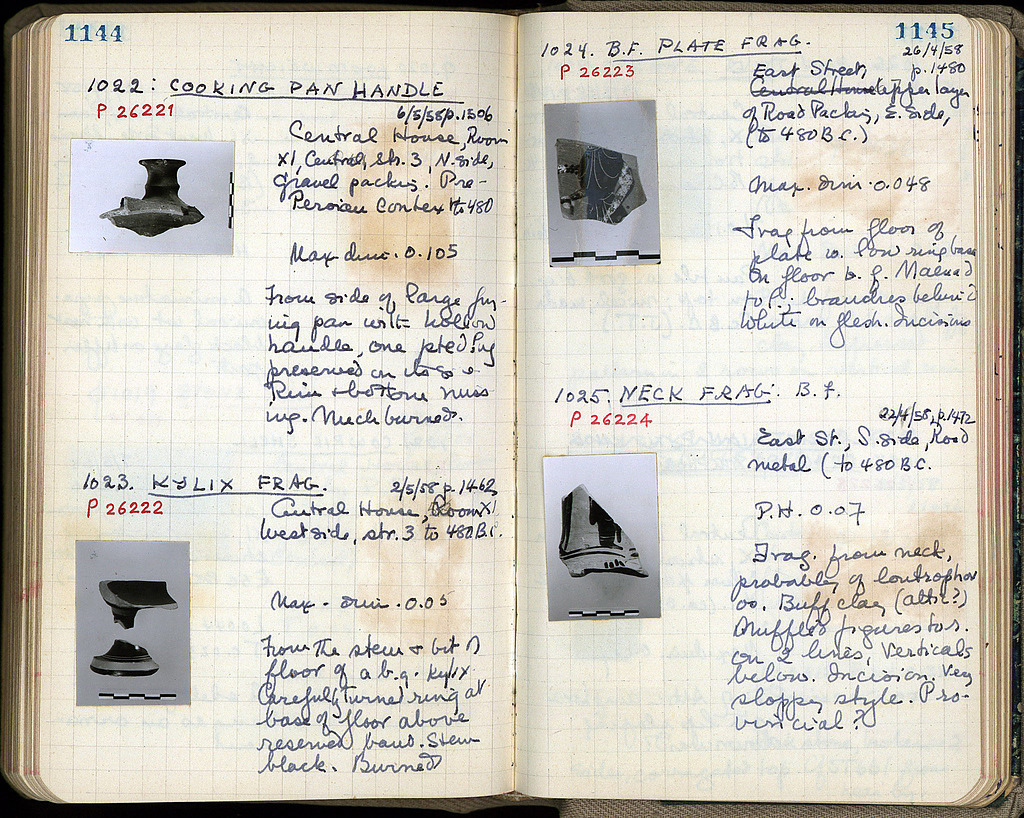 1144
1022: COOKING PAN HANDLE
P 26221
6/5/58 p. 1506
Central House, Room
XI, Central, Str. 3, N. side,
gravel packing. Pre-
Persian Context to 480
Max. dim. 0.105
From side of large fry-
ing pan with hollow
handle, one
preserved on its
Rim + bottom miss
ing. Much burned.
1023. KYLIX FRAG.
P 26222
2/5/58 p. 1462
Central House, Room XI
West side, str. 3 to 480 B.C.
Max. dim. 0.05
From the stem & bit of
floor of a b.g. kylix.
Carefully turned ring at
base of floor above
reserved band. Stem
black. Burned
1145
1024. B.F. PLATE FRAG.
P 26223
26/4/58
p. 1480
East Street,
Central House Upper layer
of Road Packing, E. side,
(to 480 B.C.)
Max. dim. 0.048
Frag from floor of
plate w. low ring base
On floor b.f. Maenad
to l.; branches behind
White on flesh. Incisions
1025. NECK FRAG. B.f.
P 26224
22/4/58, p. 1472
East St., S. side, Road
metal (to 480 B.C.
P.H. 0.07
Frag. from neck,
probably of loutrophor
os. Buff clay (attic?)
Muffled figures to r.
on 2 lines, verticals
below. Incision. Very
sloppy style. Pro-
vincial?